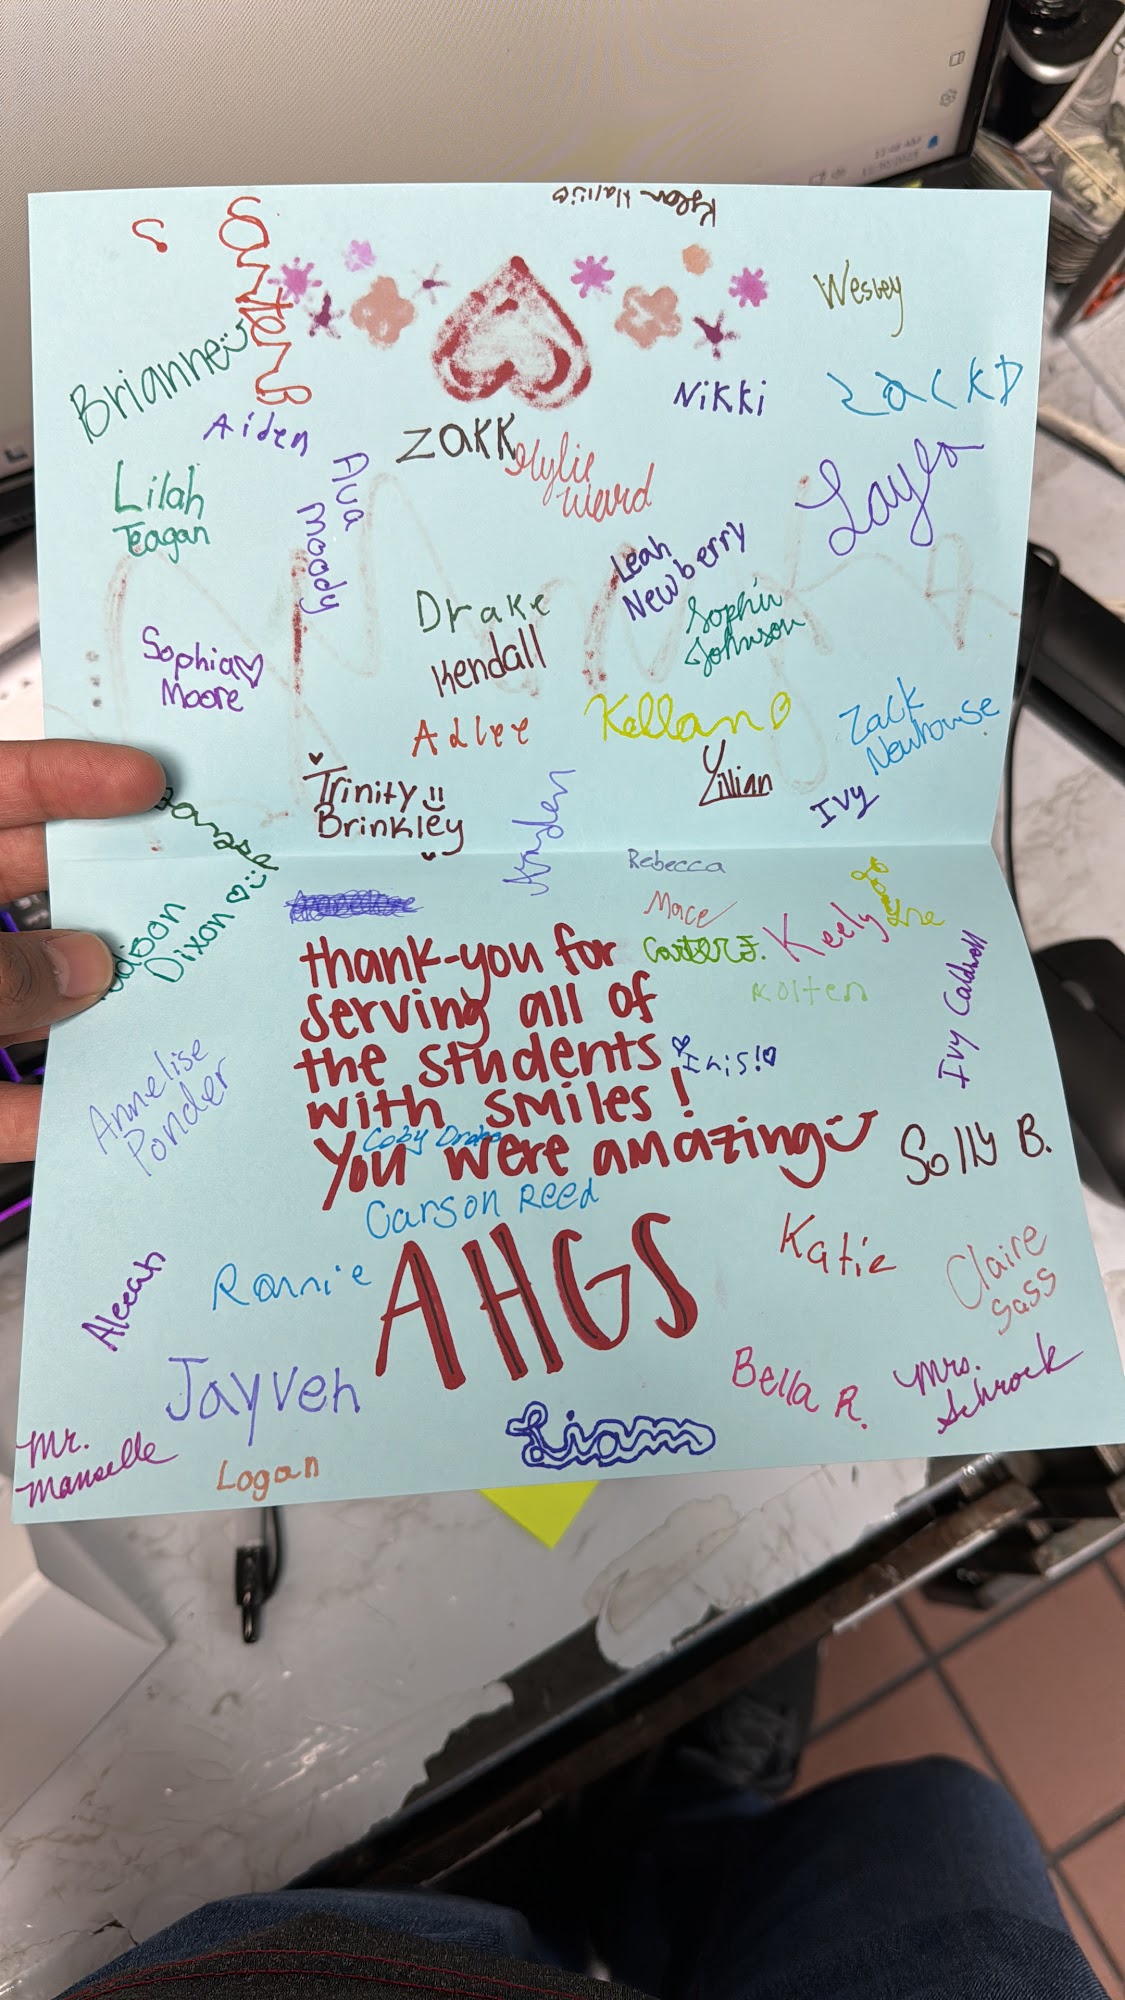 Carter B
Wesley
Brianne
Nikki
Zack D
Aiden
ZAKK
Kylie
Ward
Layla
Ava
Moody
Lilah
Teagan
Leah
Newberry
Drake
Kendall
Sophia
Johnson
Sophia
Moore
Adlee
Kellan
Zack
Newhouse
Trinity
Brinkley
Lillian
Ivy
Rebecca
Mace
Carter J.
Keely
Kolten
Dixon
Ivy Caldwell
thank-you for
serving all of
the students
with smiles!
You were amazing
Inis!
Coby Drake
Annelise
Ponder
Solly B.
Carson Reed
AHGS
Katie
Claire
Sass
Aleeah
Ronnie
Jayveh
Bella R.
Mrs.
Schrock
Liam
Mr.
Manselle
Logan